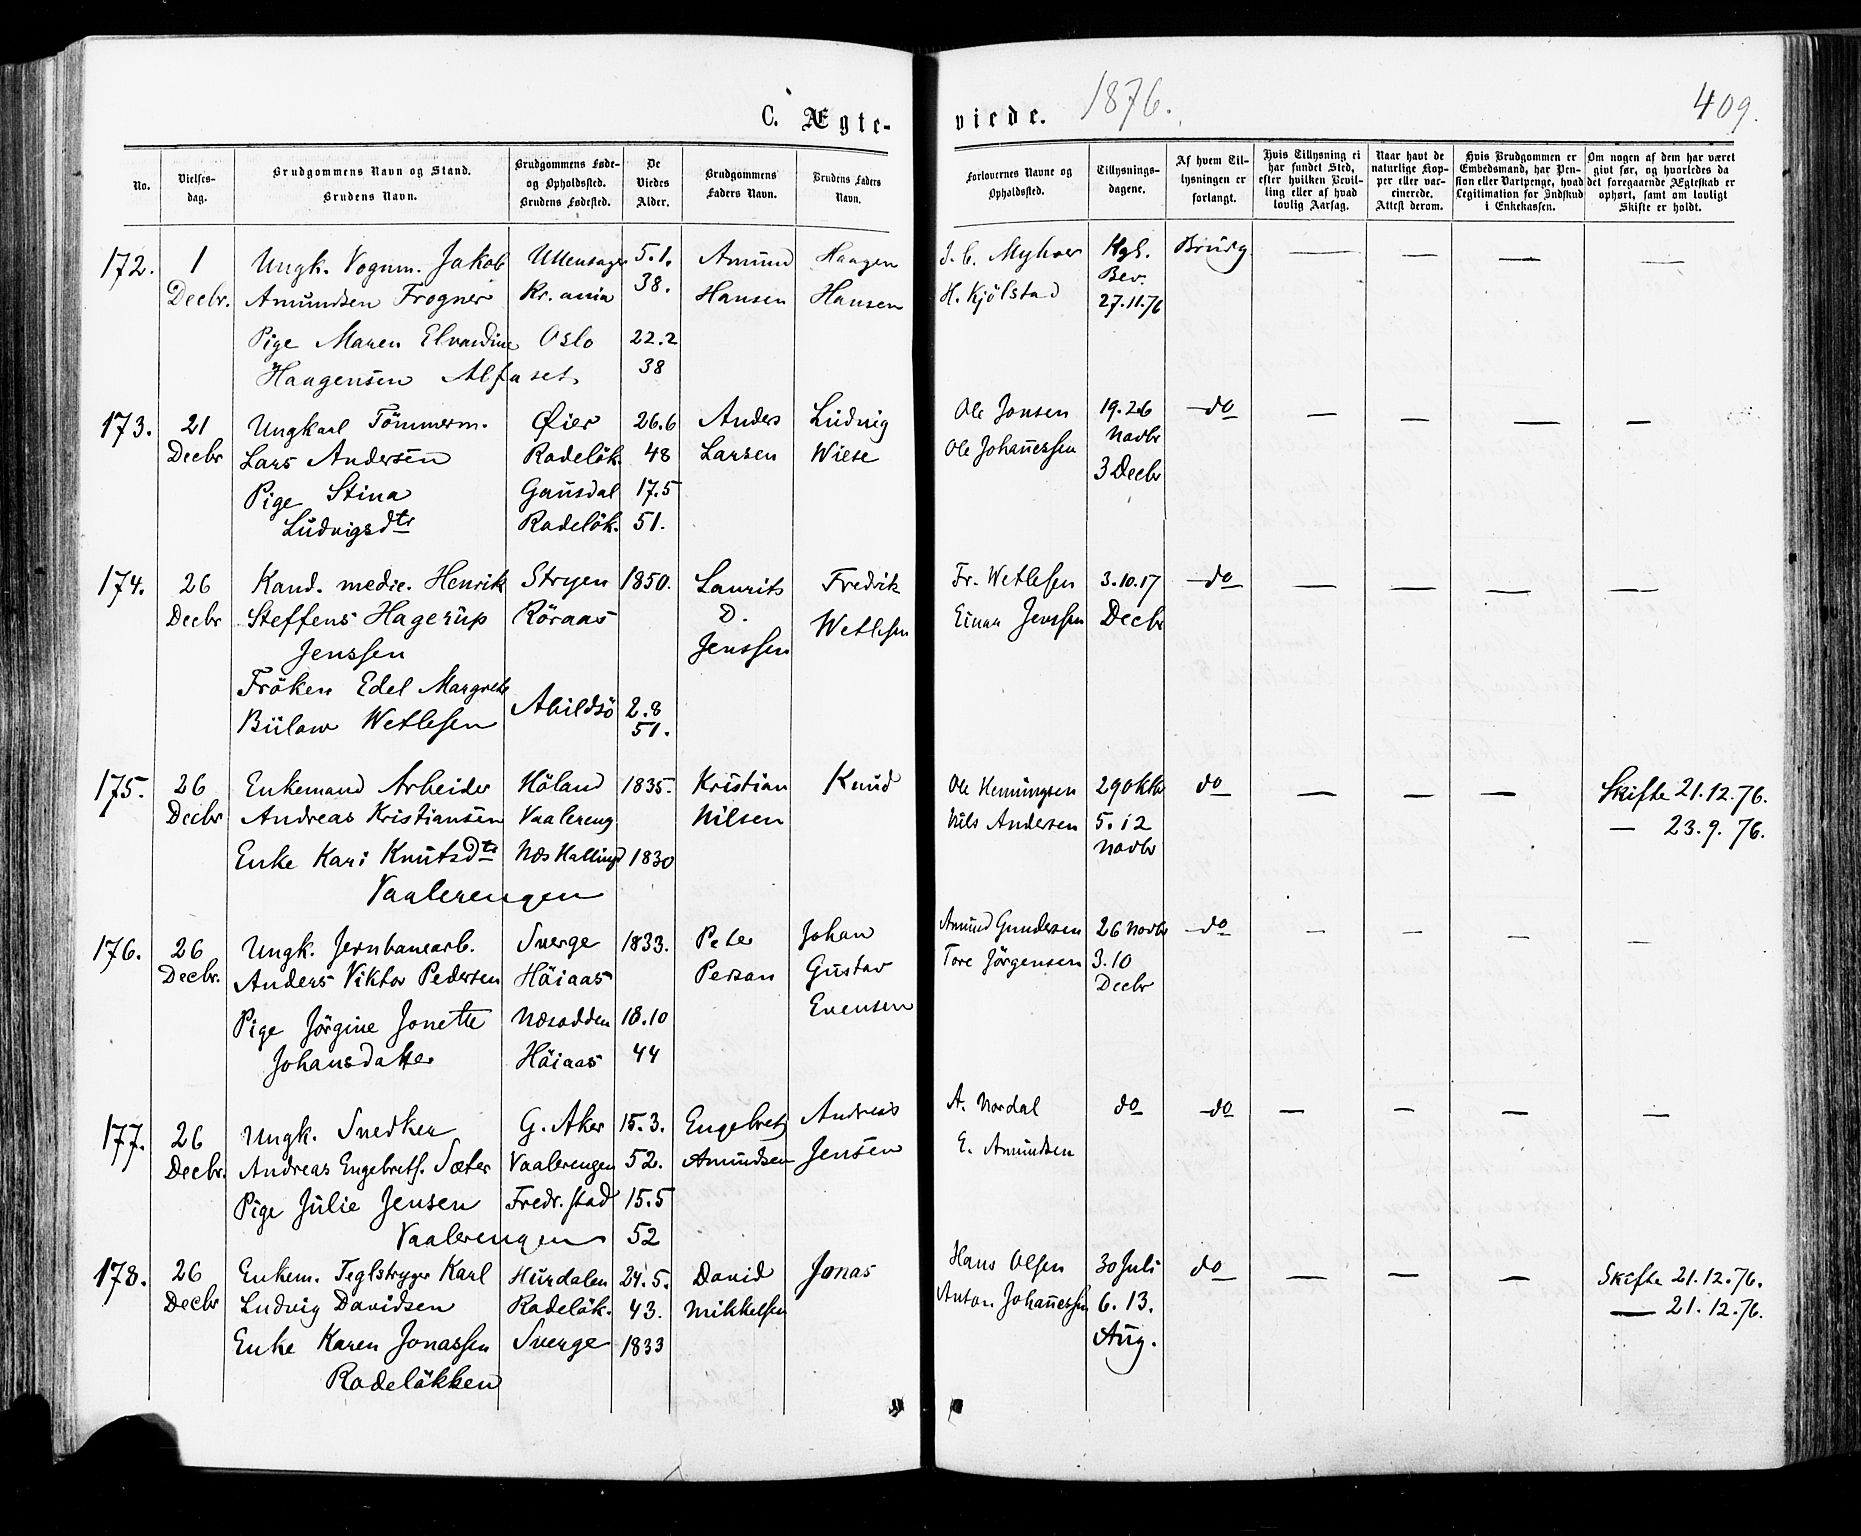 C. Ægte-
viede.
1876.
409.
No.
Vielses-
dag.
Brudgommens Navn og Stand.
Brudens Navn.
Brudgommens Føde-
og Opholdssted.
Brudens Fødested.
De
Viedes
Alder.
Brudgommens
Faders Navn.
Brudens Faders
Navn.
Forlovernes Navne og
Opholdssted.
Tillysnings-
dagene.
Af hvem Til-
lysningen er
forlangt.
Hvis Tillysning ei
har fundet Sted,
efter hvilken Bevil-
ling eller af hvad
lovlig Aarsag.
Naar havt de
naturlige Kop-
per eller vac-
cinerede.
Attest derom.
Hvis Brudgommen er
Embedsmand, har Pen-
sion eller Vartpenge, hvad
Legitimation for Indskud
i Enkekassen.
Om nogen af dem har været
gift før, og hvorledes da
det foregaaende Ægteskab er
ophørt, samt om lovligt
Skifte er holdt.
172. 1 Ungk. Vognm. Jakob Ullensager 5.1. Amund Haagen J. C. Myhrer Kgl. Brudg — — — —
Decbr. Amundsen Frogner Kr.ania 38. Hansen Hansen H. Kjölstad Bev.
27.11.76
Pige Maren Elvardine Oslo 22.2
Haagensen Alfaset. 38
173. 21 Ungkarl Tömmerm. Øier 26.6 Anders Ludvig Ole Jonsen 19.26 do — — — —
Decbr Lars Andersen Radelök. 48 Larsen Wiese Ole Johanessen Novbr
Pige Stina Gausdal 17.5 3 Decbr
Ludvigsdtr Radelök. 51.
174. 26 Kand. medic. Henrik Stryen 1850. Laurits Fredrik Fr. Wetlesen 3.10.17 do — — — —
Decbr Steffens Hagerup Röraas D. Wetlesen Einar Jenssen Decbr
Jenssen Jenssen
Fröken Edel Margrete Abildsö 2.8
Bülow Wetlesen 51.
175. 26 Enkemand Arbeider Höland 1835. Kristian Knud Ole Henningsen 29 Oktbr do — — — Skifte 21.12.76.
Decbr Andreas Kristiansen Vaalereng Nilsen Nils Andersen 5.12 — 23.9.76.
Novbr
Enke Kari Knutsdtr Næs Hallingd 1830
Vaalerengen
176. 26 Ungk. Jernbanearb. Sverge 1833. Peter Johan Amund Gundersen 26 Novbr do — — — —
Decbr. Anders Viktor Pedersen Höiaas Perzan Gustav Tore Jörgensen 3.10
Evensen Decbr
Pige Jörgine Jonette Næsodden 18.10
Johansdatter Höiaas 44
177. 26 Ungk. Snedker G. Aker 15.3. Engebret Andreas A. Nordal do do — — — —
Decbr. Andreas Engebrets. Sæter Vaalerengen 52. Amundsen Jensen E. Amundsen
Pige Julie Jensen Fredr.stad 15.5
Vaalerengen 52
178. 26 Enkem. Teglstryger Karl Hurdalen 24.5. David Jonas Hans Olsen 30 Juli do — — — Skifte 21.12.76.
Decbr Ludvig Davidsen Radelök. 43. Mikkelsen Anton Johanessen 6.13. — 21.12.76.
Enke Karen Jonassen Sverge 1833 Aug.
Radelökken